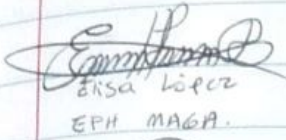 Elisa López
EPH MAGA.